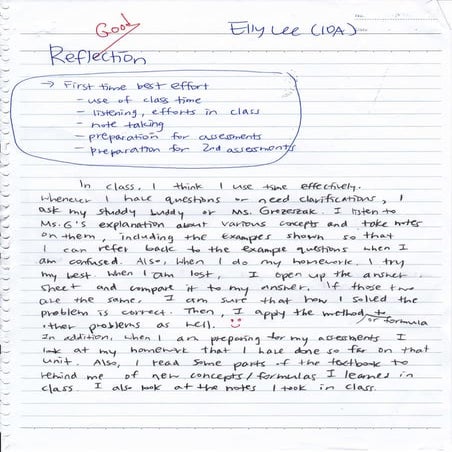 Good
Elly Lee (10A)
Reflection
→ First time best effort
- use of class time
- listening, efforts in class
- note taking
- preparation for assessments
- preparation for 2nd assessments
In class, I think I use time effectively.
Whenever I have questions or need clarifications, I
ask my studdy buddy or Ms. Grezeszak. I listen to
Ms. G's explanation about various concepts and take notes
on them, including the examples shown so that
I can refer back to the example questions when I
am confused. Also, when I do my homework, I try
my best. When I am lost, I open up the answer
sheet and compare it to my answer. If those two
are the same, I am sure that how I solved the
problem is correct. Then, I apply the method to
or formula
other problems as well.
In addition, when I am prepering for my assesments I
look at my homework that I have done so far on that
unit. Also, I read some parts of the textbook to
remind me of new concepts/formulas I learned in
class. I also look at the notes I took in class.